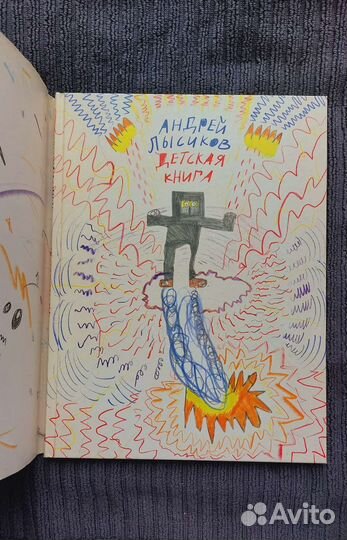 АНДРЕЙ
ЛЫСИКОВ
ДЕТСКАЯ
КНИГА
Avito